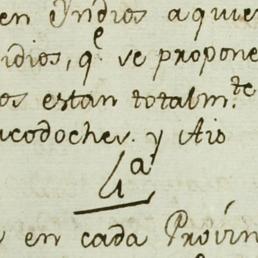 en Indios a quie
idios, q.e se propone
os estan totalm.te
acodoches. y Ais
4a
y en cada Provin